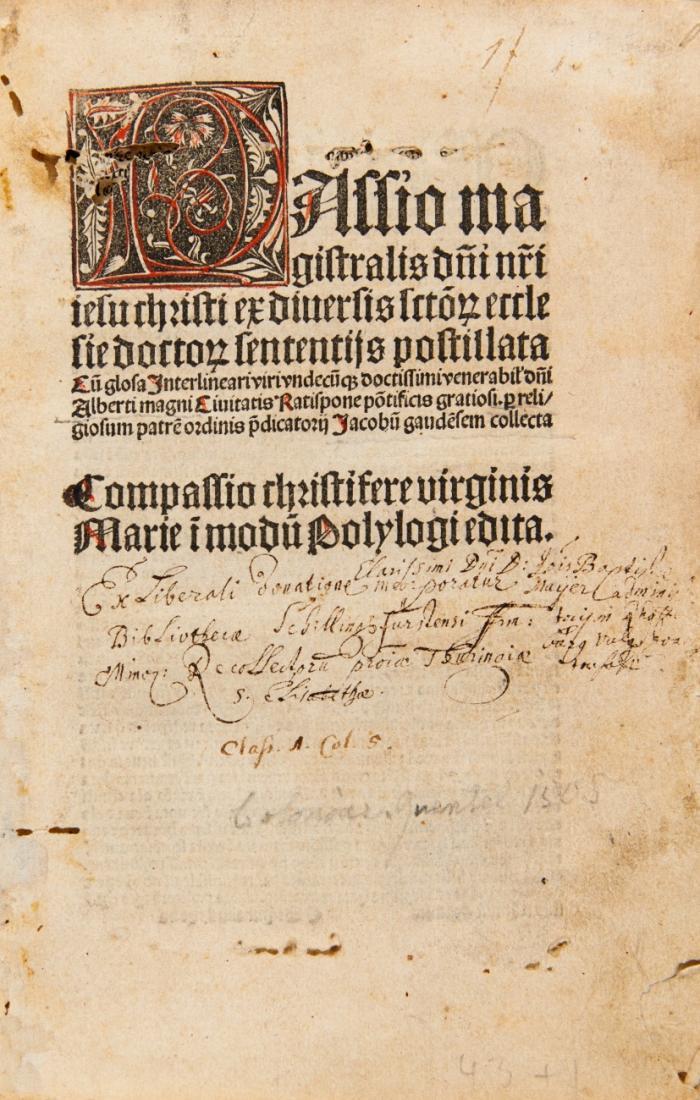 PAssio ma
gistralis dñi nr̃i
iesu christi ex diuersis sctõꝝ eccle
sie doctoꝝ sententijs postillata
Cũ glosa Interlineari viri vndecũqꝫ doctissimi venerabil' dñi
Alberti magni Ciuitatis Ratispone põtificis gratiosi. ꝑ reli/
giosum patrẽ ordinis p̃dicatorij Jacobũ gaudẽsem collecta
Compassio christifere virginis
Marie ĩ modũ Polylogi edita.
Clarissimi Dni D: Jois Baptist
Ex Liberali donatione incorporatur Mayer
Bibliothecæ Schillingsfurstensi Frm:
Minor: Recollectorũ proiæ Thuringiæ
S. Elisabethæ.
Class. A. Col. 5.
Coloniae. Quentel 1505
43 + 1